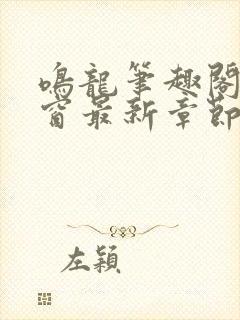 鳴龍筆趣閣
窗最新章節
左穎